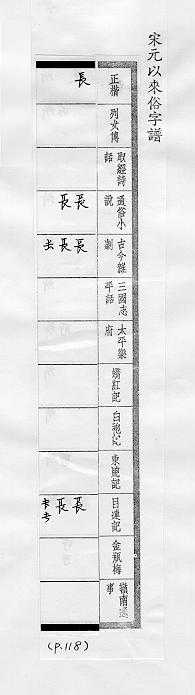 宋元以來俗字譜
正楷 長
列女傳
取經詩話
通俗小說 長長
古今雜劇 長長
三國志平話
太平樂府
嬌紅記
白袍記
東窗記
目連記 長長
金瓶梅
嶺南逸事
(P.118)